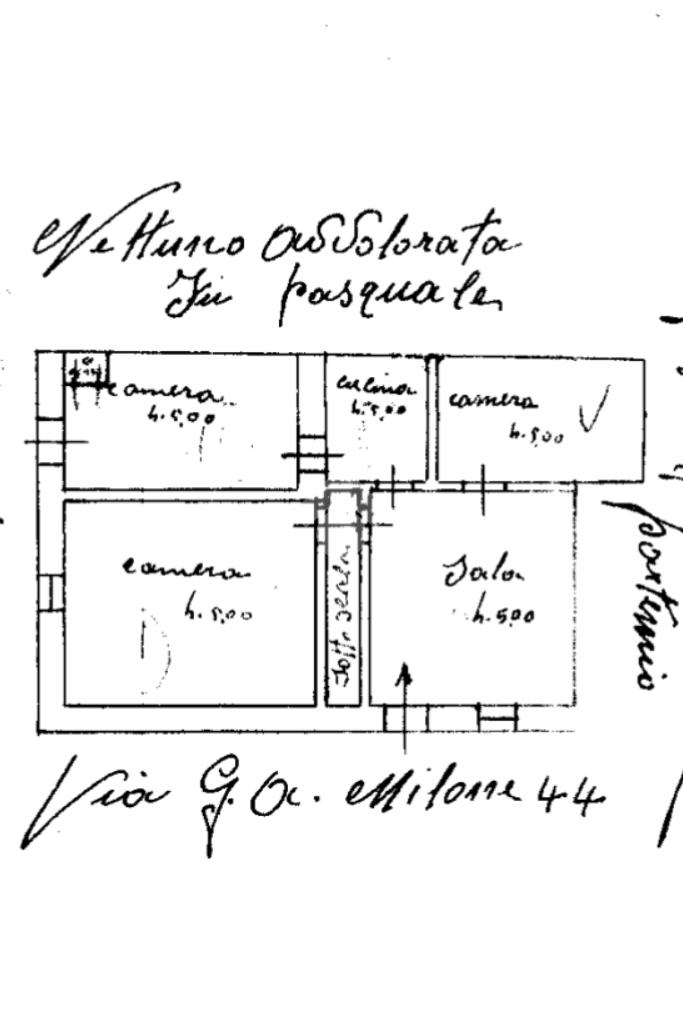 Nettuno Addolorata
Fu pasquale
camera
h. 5,00
cucina
h. 5,00
camera
h. 5,00
camera
h. 5,00
sotto scala
Sala
h. 5,00
partenio
Via G. A. Milone 44